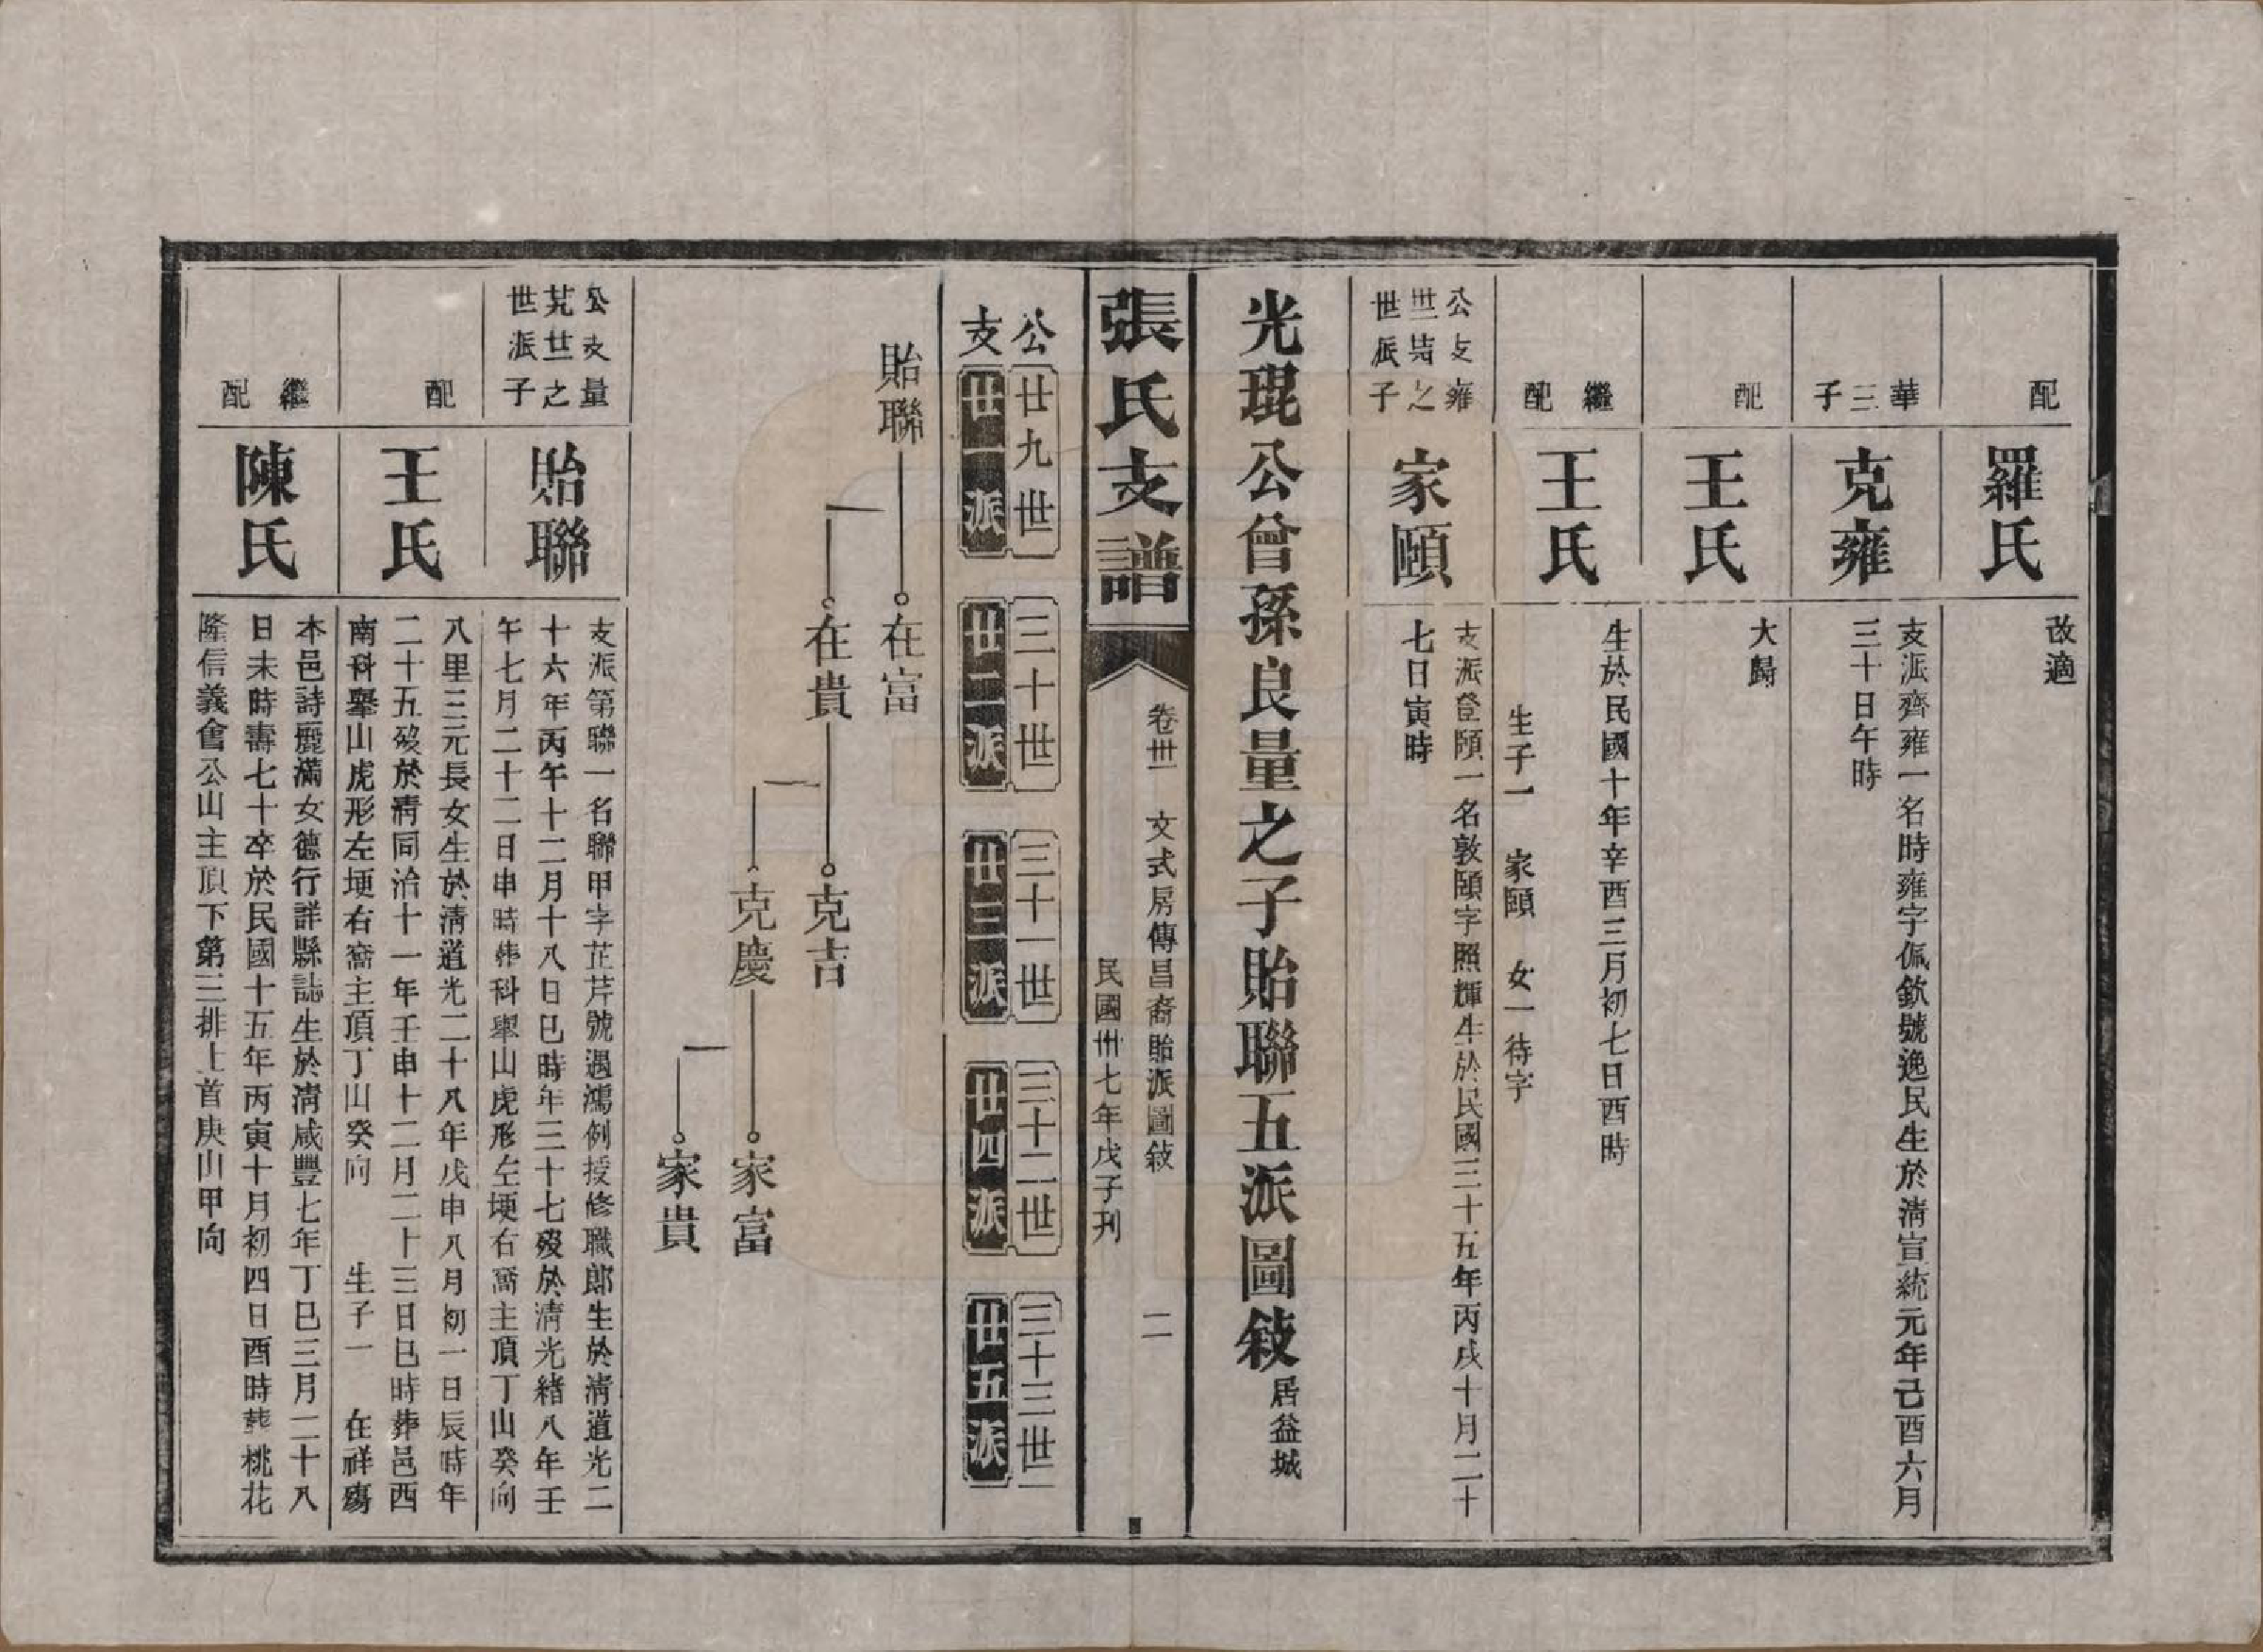 配
羅氏
改適
華三子
克雍
支派齊雍一名時雍字佩欽號逸民生於清宣統元年己酉六月
三十日午時
配
王氏
大歸
繼配
王氏
生於民國十年辛酉三月初七日酉時
生子一 家頤 女一待字
公支雍
之
世派子
家頤
支派登頤一名敦頤字照輝生於民國三十五年丙戌十月二十
七日寅時
光琨公曾孫良量之子貽聯五派圖敍居益城
張氏支譜
卷卅一 文式房傳昌裔貽派圖敍 二
民國卅七年戊子刊
公支
廿九世 廿一派
三十世 廿二派
三十一世 廿三派
三十二世 廿四派
三十三世 廿五派
貽聯
在富
在貴
克吉
克慶
家富
家貴
公支量
世之
世派子
貽聯
支派第聯一名聯甲字芷芹號遇鴻例授修職郎生於清道光二
十六年丙午十二月十八日巳時年三十七歿於清光緒八年壬
午七月二十二日申時葬科舉山虎形左埂右窩主頂丁山癸向
配
王氏
八里三元長女生於清道光二十八年戊申八月初一日辰時年
二十五歿於清同治十一年壬申十二月二十三日巳時葬邑西
南科舉山虎形左埂右窩主頂丁山癸向 生子一 在祥殤
繼配
陳氏
本邑詩麗滿女德行詳縣誌生於清咸豐七年丁巳三月二十八
日未時壽七十卒於民國十五年丙寅十月初四日酉時葬桃花
隆信義會公山主頂下第三排上首庚山甲向